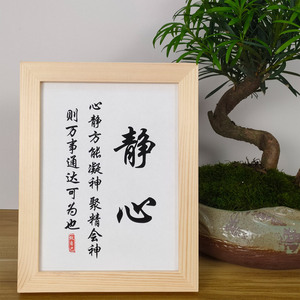 静心
心静方能凝神 聚精会神
则万事通达可为也